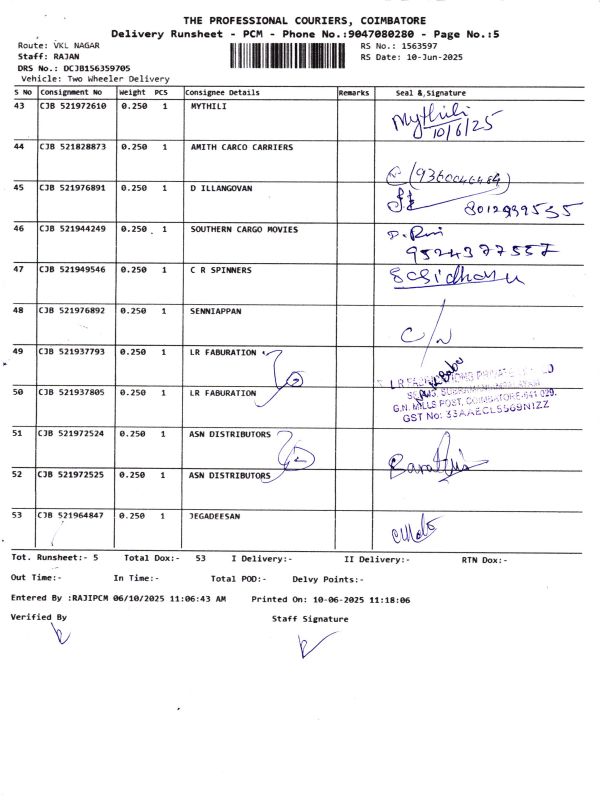 THE PROFESSIONAL COURIERS, COIMBATORE
Delivery Runsheet - PCM - Phone No.:9047080280 - Page No.:5
Route: VKL NAGAR
RS No.: 1563597
Staff: RAJAN
RS Date: 10-Jun-2025
DRS No.: DCJB156359705
Vehicle: Two Wheeler Delivery
S No Consignment No Weight PCS Consignee Details Remarks Seal & Signature
43 CJB 521972610 0.250 1 MYTHILI Mythili
10/6/25
44 CJB 521828873 0.250 1 AMITH CARCO CARRIERS
45 CJB 521976891 0.250 1 D ILLANGOVAN
46 CJB 521944249 0.250 1 SOUTHERN CARGO MOVIES
9524377557
47 CJB 521949546 0.250 1 C R SPINNERS
48 CJB 521976892 0.250 1 SENNIAPPAN
C/N
49 CJB 521937793 0.250 1 LR FABURATION
50 CJB 521937805 0.250 1 LR FABURATION
G.N. MILLS POST, COIMBATORE-641 029.
GST No: 33AAECL5569N1ZZ
51 CJB 521972524 0.250 1 ASN DISTRIBUTORS
52 CJB 521972525 0.250 1 ASN DISTRIBUTORS
53 CJB 521964847 0.250 1 JEGADEESAN
Tot. Runsheet:- 5 Total Dox:- 53 I Delivery:- II Delivery:- RTN Dox:-
Out Time:- In Time:- Total POD:- Delvy Points:-
Entered By :RAJIPCM 06/10/2025 11:06:43 AM Printed On: 10-06-2025 11:18:06
Verified By Staff Signature